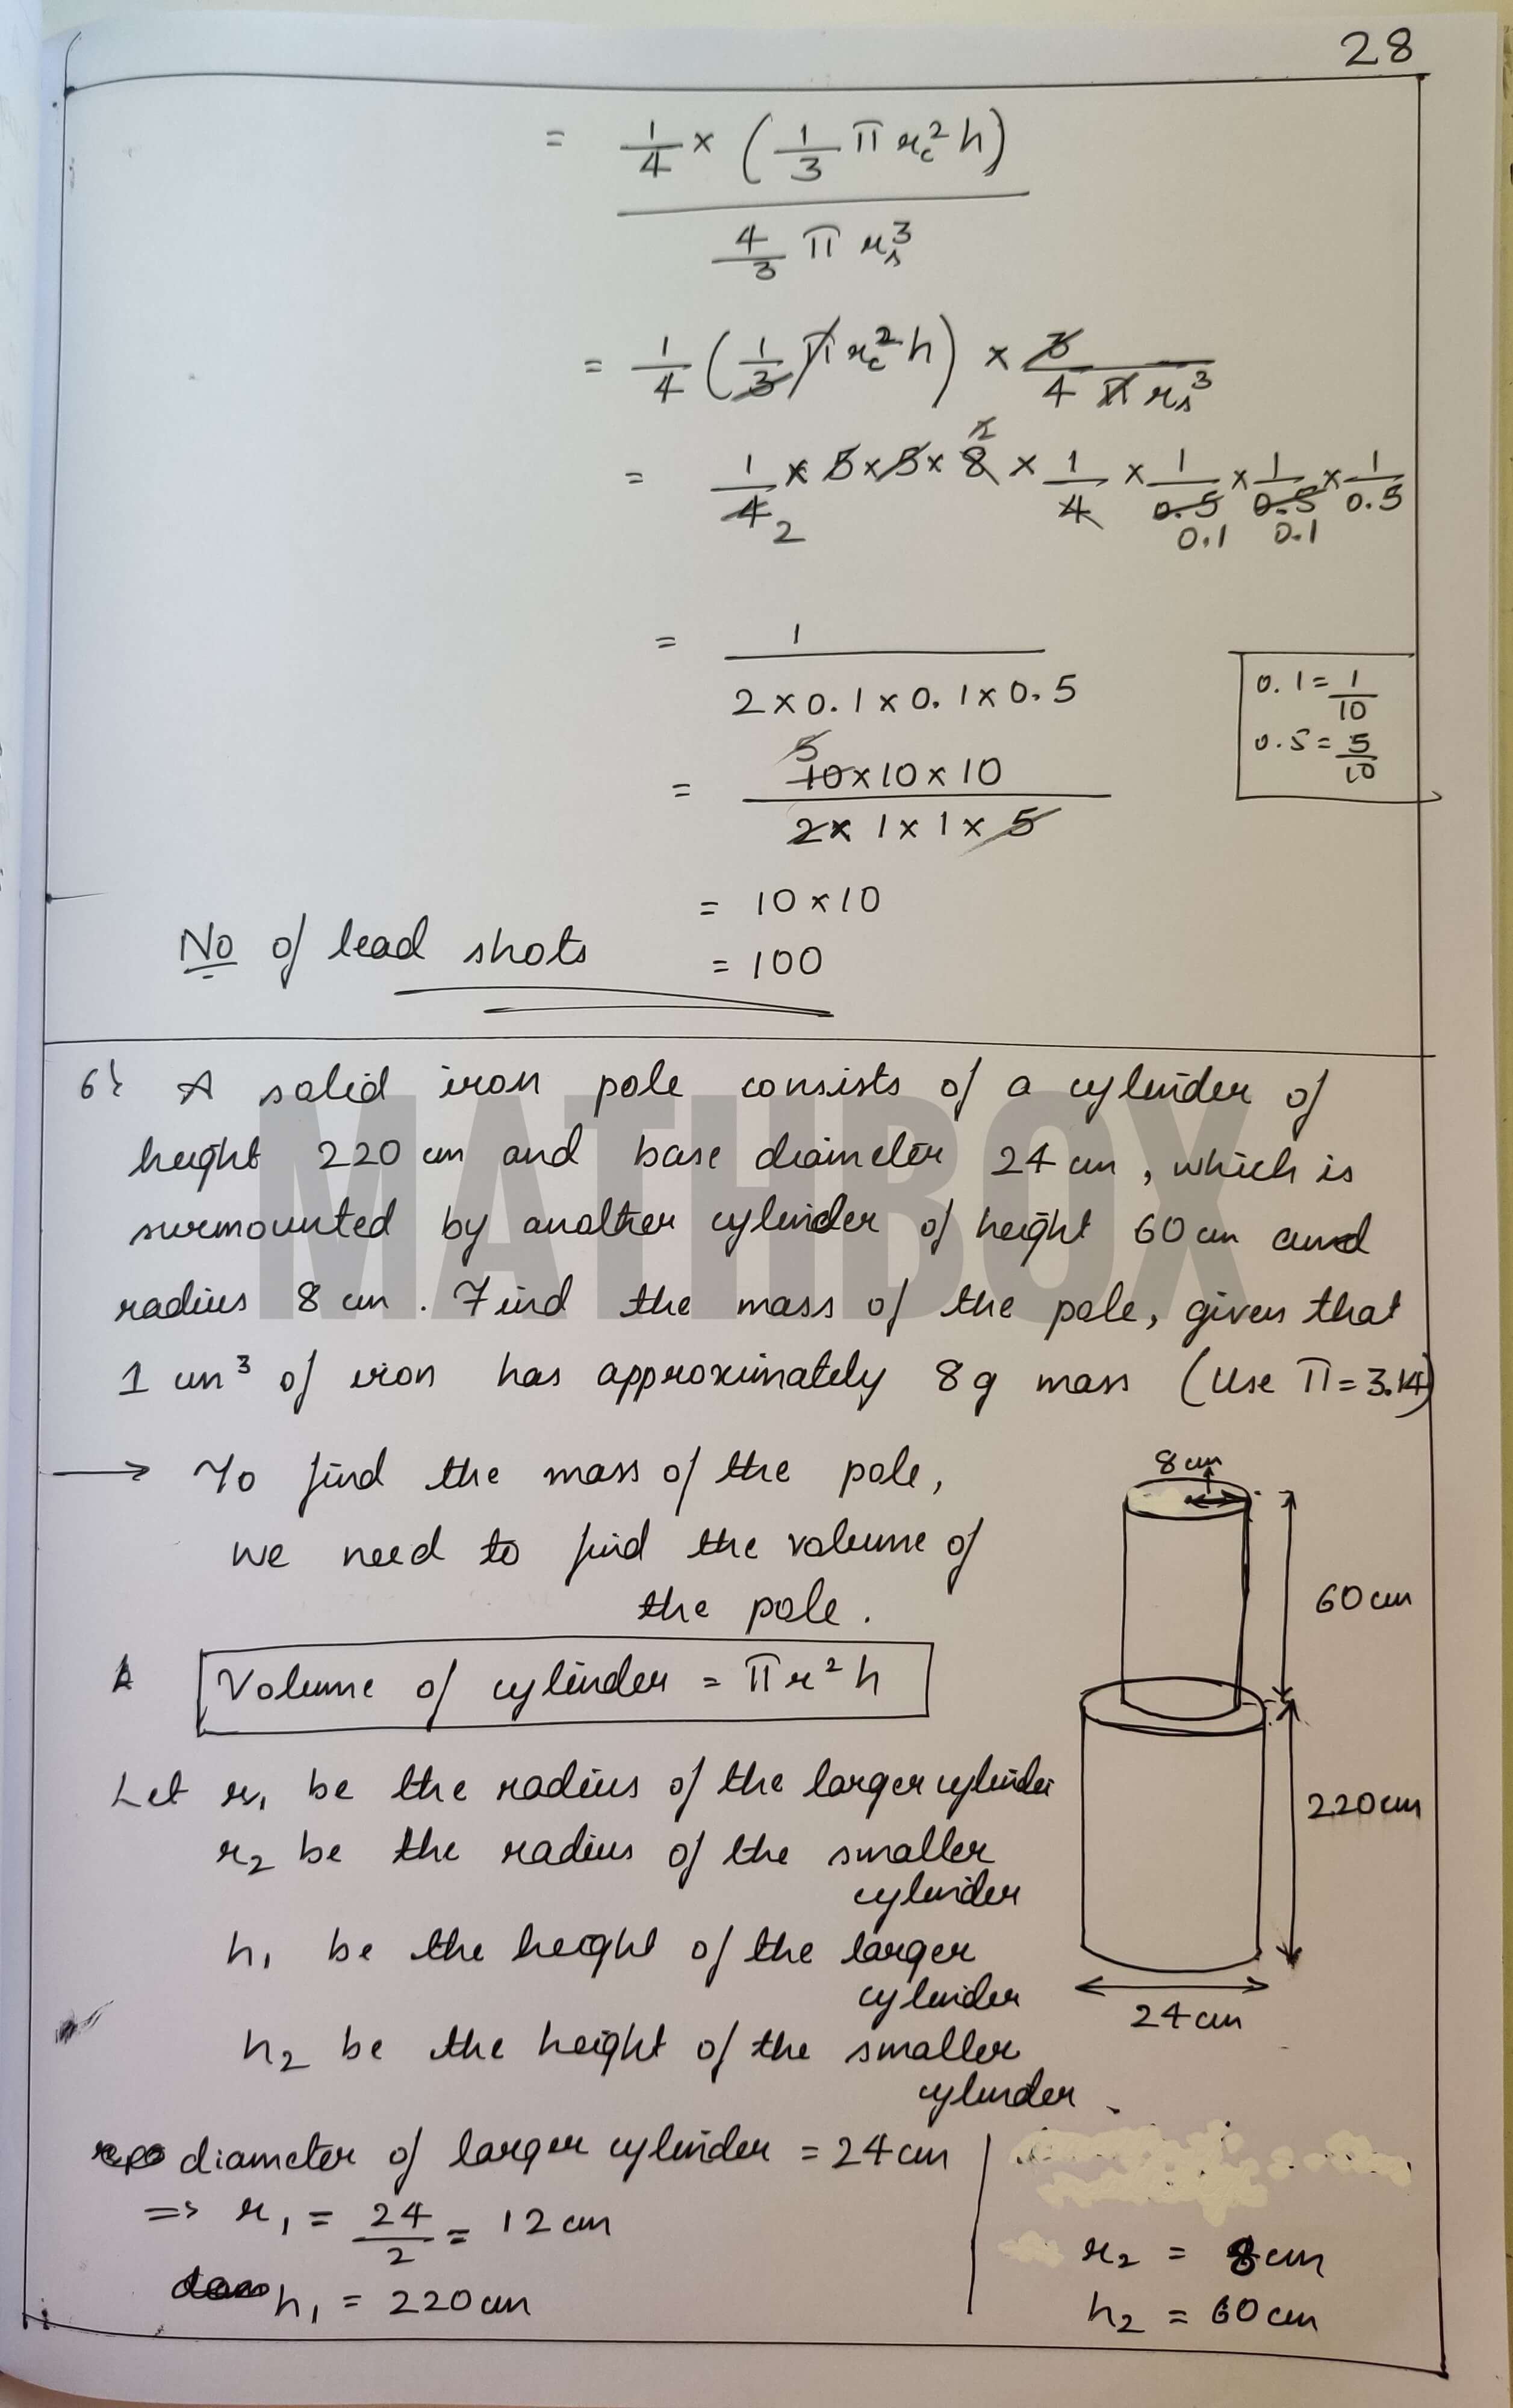 28
= 1/4 × (1/3 π r_c² h)
4/3 π r_s³
= 1/4 (1/3 π r_c² h) × 3/4 π r_s³
2
= 1/4 × 5 × 5 × 8 × 1/4 × 1/0.5 × 1/0.5 × 1/0.5
2 0.1 0.1
= 1
2 × 0.1 × 0.1 × 0.5
0.1 = 1/10
0.5 = 5/10
5
= 10 × 10 × 10
2 × 1 × 1 × 5
= 10 × 10
No of lead shots = 100
6} A solid iron pole consists of a cylinder of
height 220 cm and base diameter 24 cm, which is
surmounted by another cylinder of height 60 cm and
radius 8 cm. Find the mass of the pole, given that
1 cm³ of iron has approximately 8g mass (Use π = 3.14)
MATHBOX
→ To find the mass of the pole,
we need to find the volume of
the pole.
Volume of cylinder = πr²h
8 cm
60 cm
220 cm
24 cm
Let r₁ be the radius of the larger cylinder
r₂ be the radius of the smaller
cylinder
h₁ be the height of the larger
cylinder
h₂ be the height of the smaller
cylinder.
diameter of larger cylinder = 24 cm
⇒ r₁ = 24/2 = 12 cm
h₁ = 220 cm
r₂ = 8 cm
h₂ = 60 cm